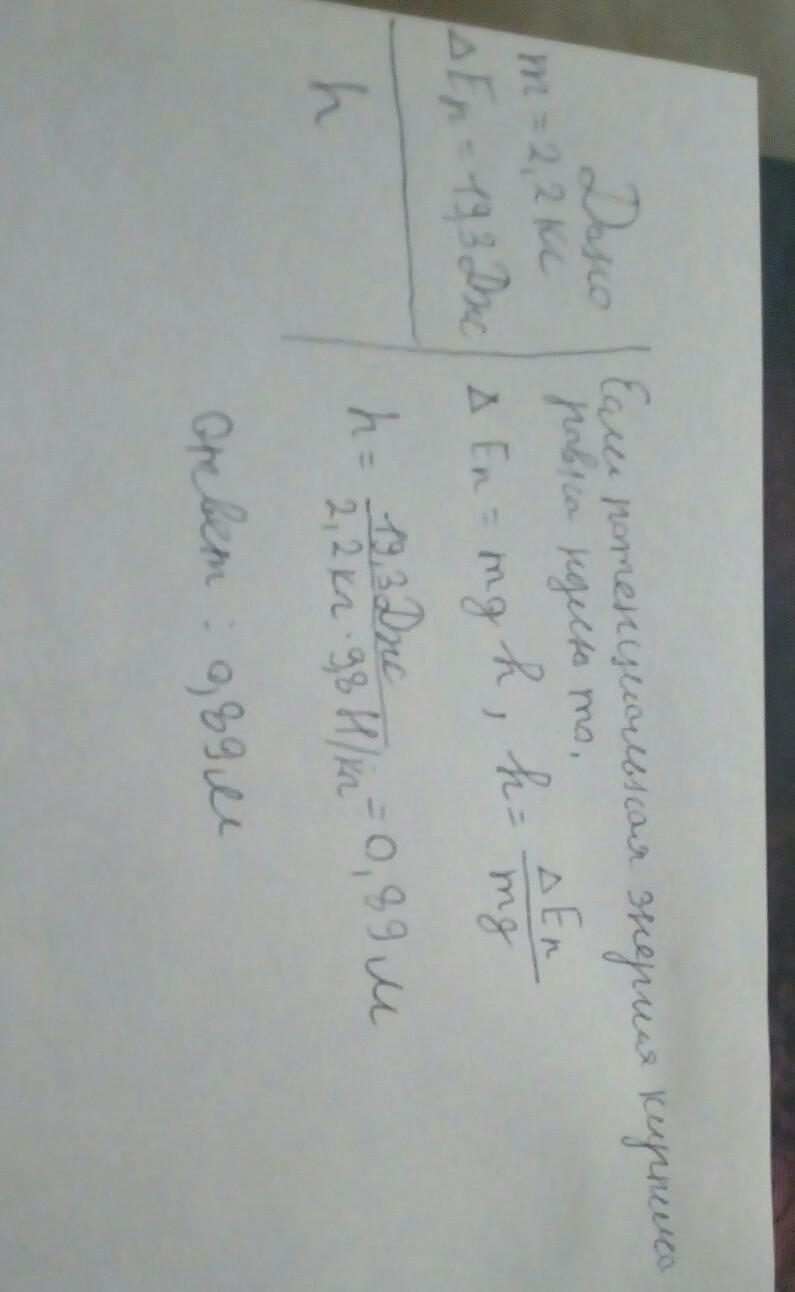 Дано
m = 2,2 кг
ΔEп = 19,3 Дж
h
Если потенциальная энергия кирпича
равна нулю то,
ΔEп = mgh, h = ΔEп/mg
h = 19,3Дж/2,2 кг · 9,8 Н/кг = 0,89 м
Ответ: 0,89 м